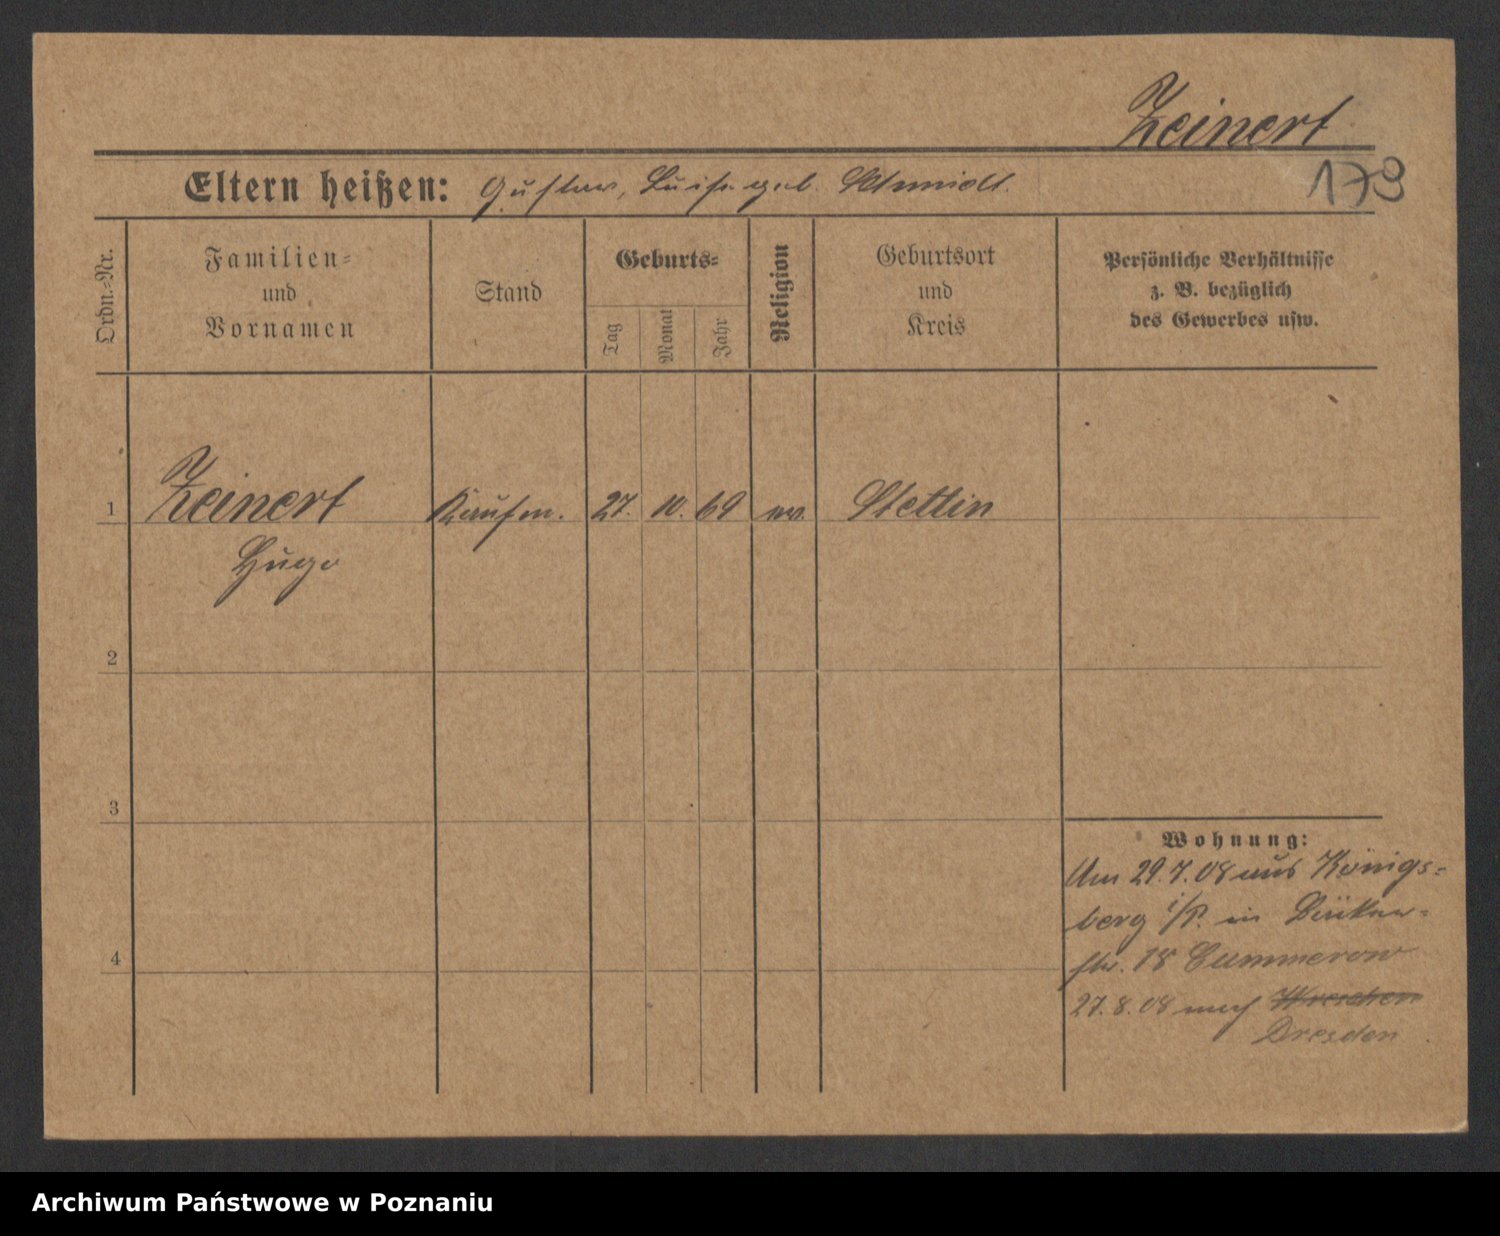 Zeinert
173
Eltern heißen: Gustav, Luise geb. Schmidt.
Ordn.=Nr.
Familien=
und
Vornamen
Stand
Geburts=
Tag
Monat
Jahr
Religion
Geburtsort
und
Kreis
Persönliche Verhältnisse
z. B. bezüglich
des Gewerbes usw.
1 Zeinert Kaufm. 27. 10. 69 ev. Stettin
Hugo
2
3
Wohnung:
Am 29.7.08 aus Königs=
berg i/P. in
4
str. 18 Cummerow
27.8.08 nach Wreschen
Dresden
Archiwum Państwowe w Poznaniu